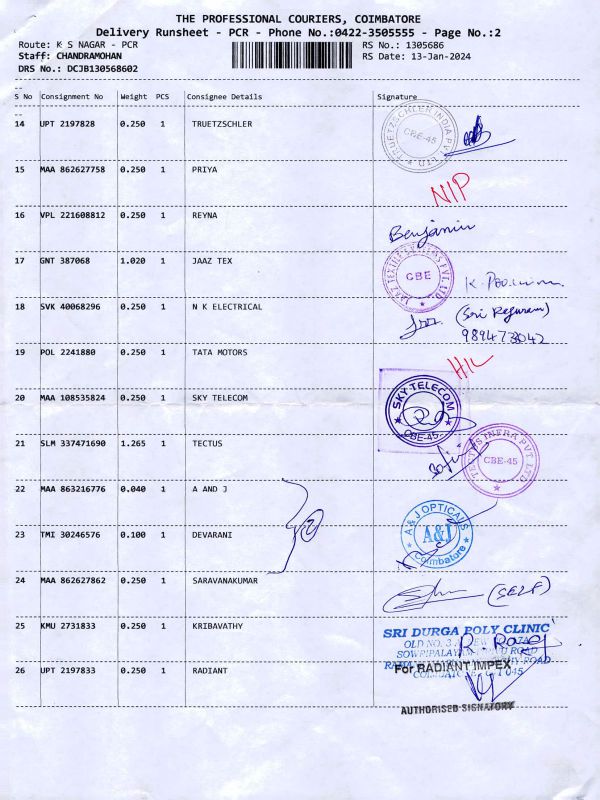 THE PROFESSIONAL COURIERS, COIMBATORE
Delivery Runsheet - PCR - Phone No.:0422-3505555 - Page No.:2
Route: K S NAGAR - PCR
RS No.: 1305686
Staff: CHANDRAMOHAN
RS Date: 13-Jan-2024
DRS No.: DCJB130568602
S No Consignment No Weight PCS Consignee Details Signature
14 UPT 2197828 0.250 1 TRUETZSCHLER
TRUETZSCHLER INDIA PVT. LTD
CBE-45
15 MAA 862627758 0.250 1 PRIYA
NIP
16 VPL 221608812 0.250 1 REYNA
Benjamin
17 GNT 387068 1.020 1 JAAZ TEX
CBE
18 SVK 40068296 0.250 1 N K ELECTRICAL
19 POL 2241880 0.250 1 TATA MOTORS
20 MAA 108535824 0.250 1 SKY TELECOM
SKY TELECOM
CBE-45
21 SLM 337471690 1.265 1 TECTUS
TECTUS INFRA PVT LTD
CBE-45
22 MAA 863216776 0.040 1 A AND J
A & J OPTICALS
A&J
Coimbatore
23 TMI 30246576 0.100 1 DEVARANI
24 MAA 862627862 0.250 1 SARAVANAKUMAR
(SELF)
25 KMU 2731833 0.250 1 KRIBAVATHY
SRI DURGA POLY CLINIC
26 UPT 2197833 0.250 1 RADIANT
For RADIANT IMPEX
AUTHORISED SIGNATORY